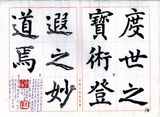 度世之
寶術登
遐之妙
道焉